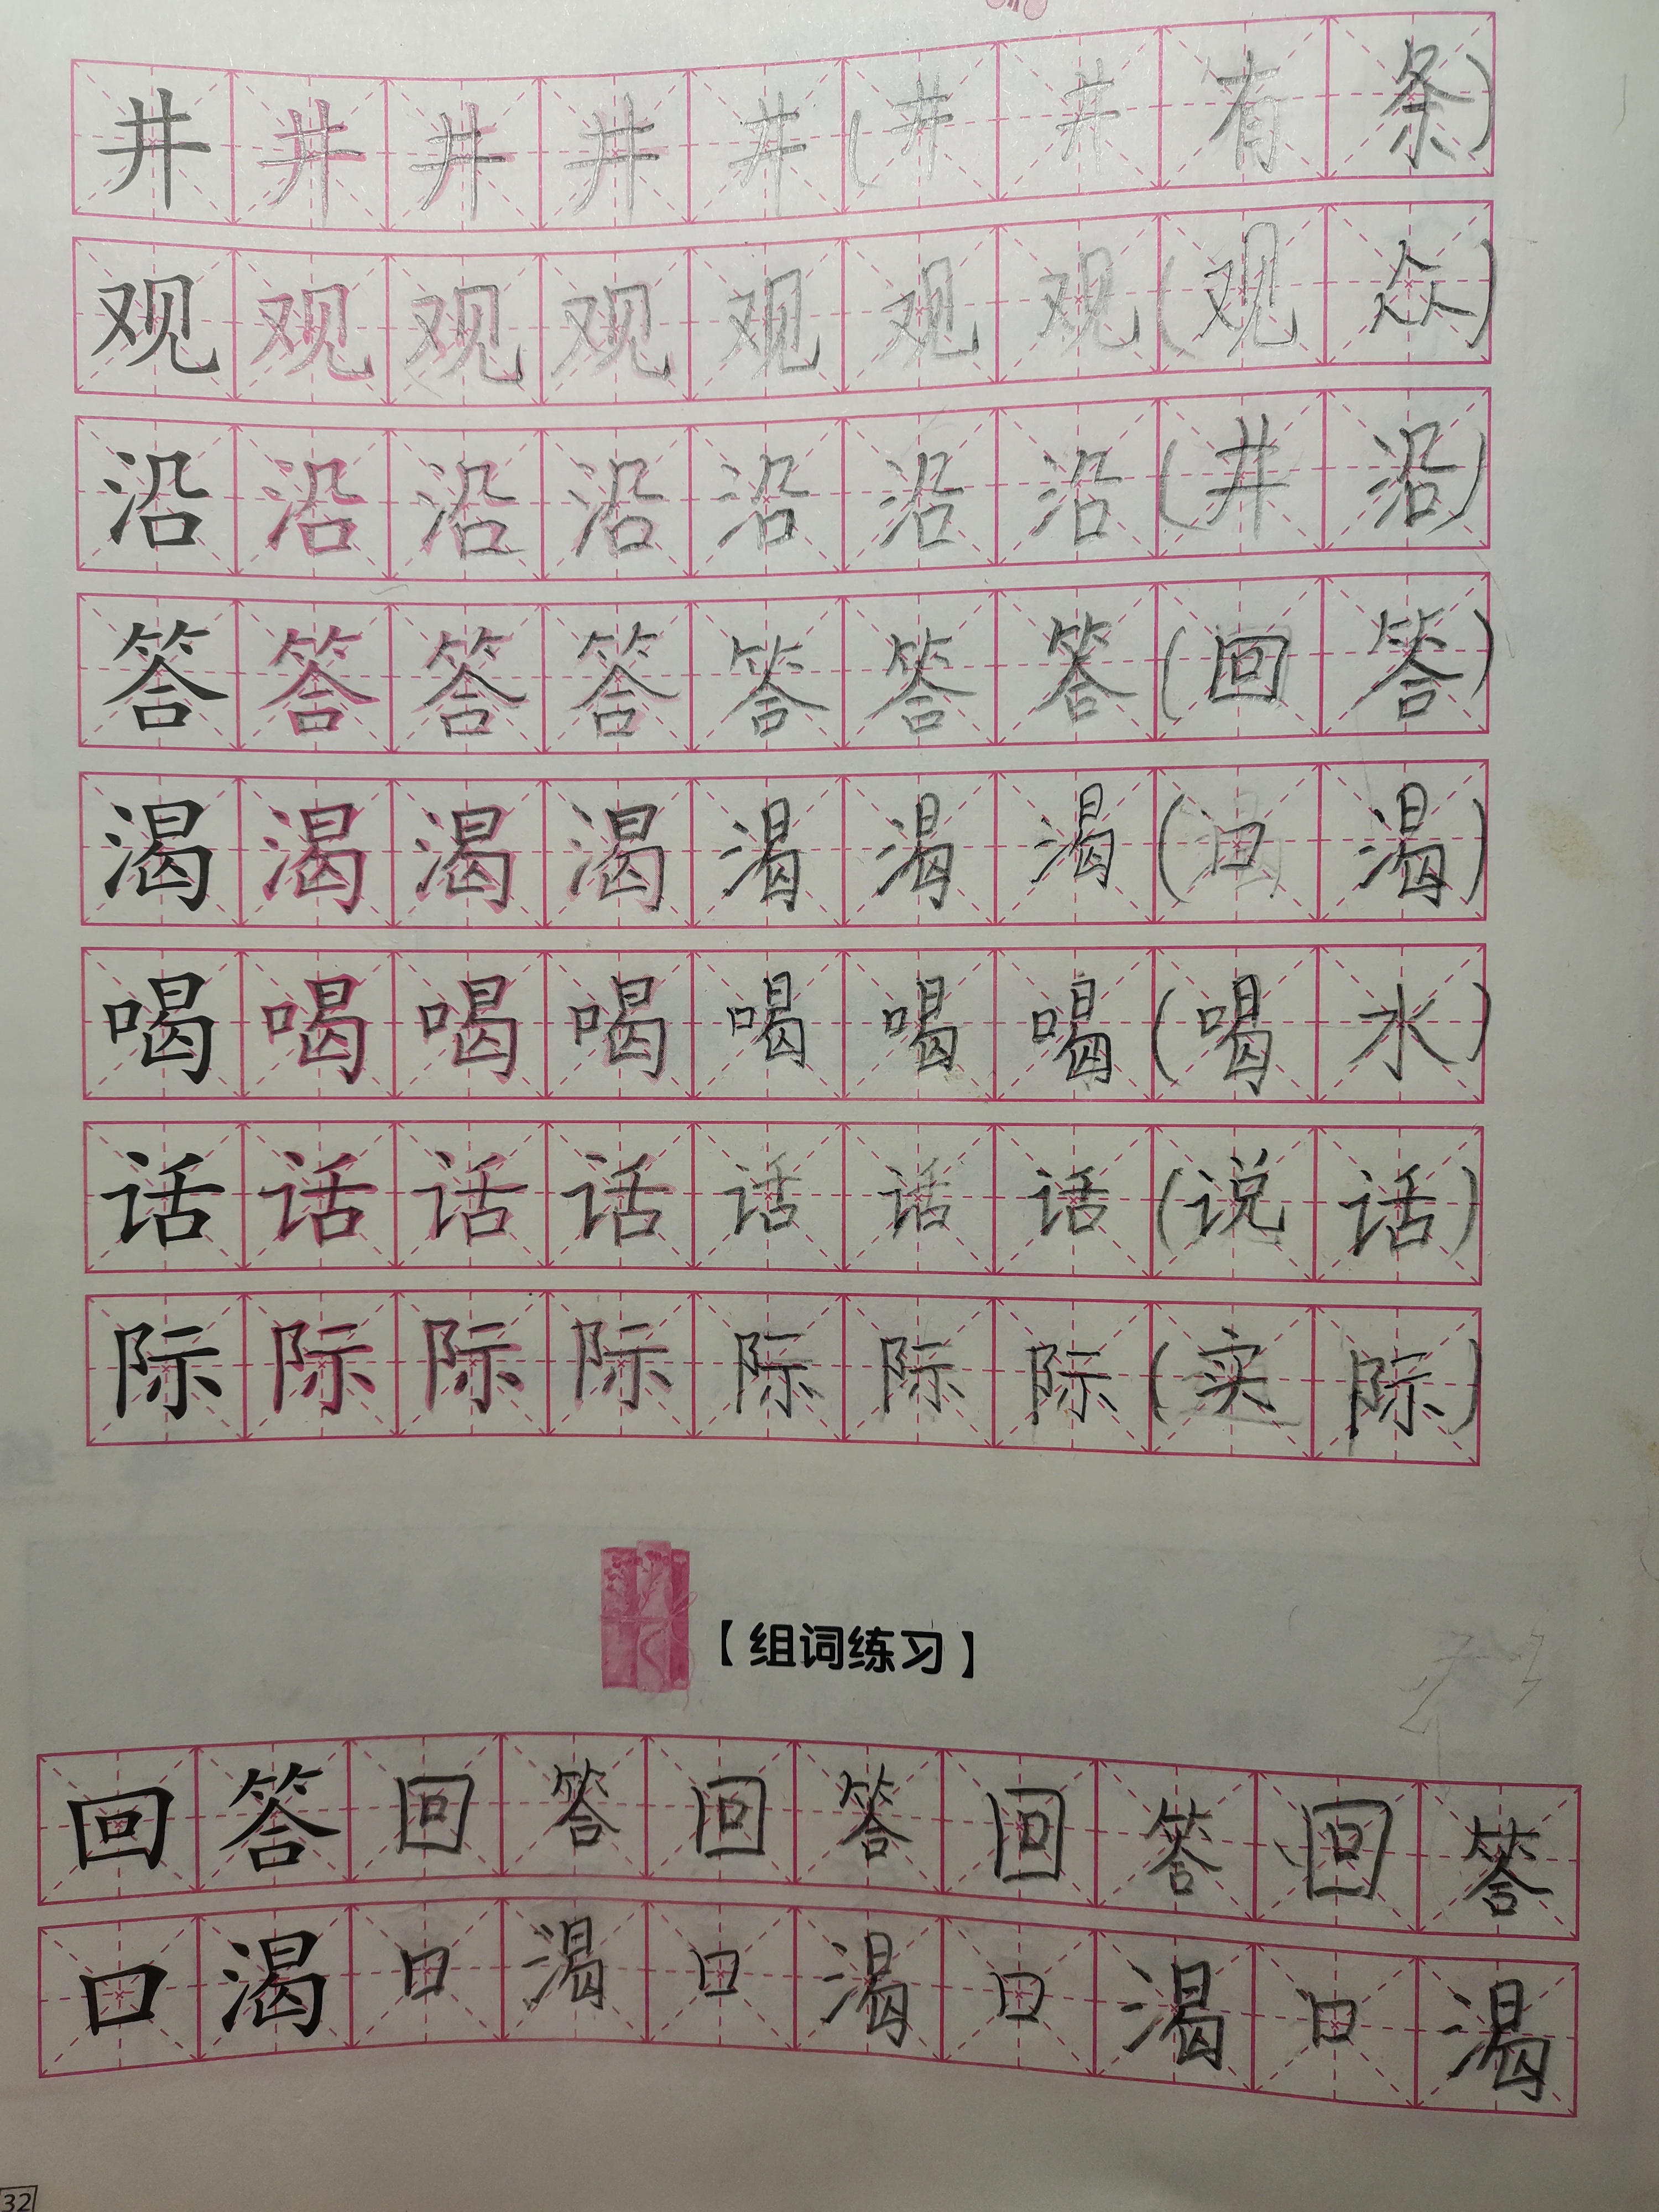 井井井井井(井井有条)
观观观观观观观(观众)
沿沿沿沿沿沿沿(井沿)
答答答答答答答(回答)
渴渴渴渴渴渴渴(口渴)
喝喝喝喝喝喝喝(喝水)
话话话话话话话(说话)
际际际际际际际(实际)
【组词练习】
回答回答回答回答回答
口渴口渴口渴口渴口渴
32